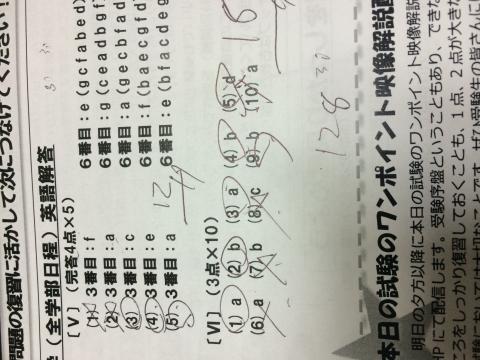 問題の復習に活かして次につなげてください！
（全学部日程）英語解答
［Ⅴ］（完答4点×5）
(1) 3番目：f 6番目：e (gcfabed)
(2) 3番目：a 6番目：g (ceadbgf)
(3) 3番目：c 6番目：a (gecbfad)
(4) 3番目：e 6番目：f (baecgfd)
(5) 3番目：a 6番目：e (bfacdeg)
12
［Ⅵ］（3点×10）
(1) a (2) b (3) a (4) b (5) d
(6) a (7) b (8) c (9) b (10) a
128
本日の試験のワンポイント映像解説配
明日の夕方以降に本日の試験のワンポイント映像解説
HPにて配信します。受験序盤ということもあり、できな
ころをしっかり復習しておくことも、1点、2点が大きな